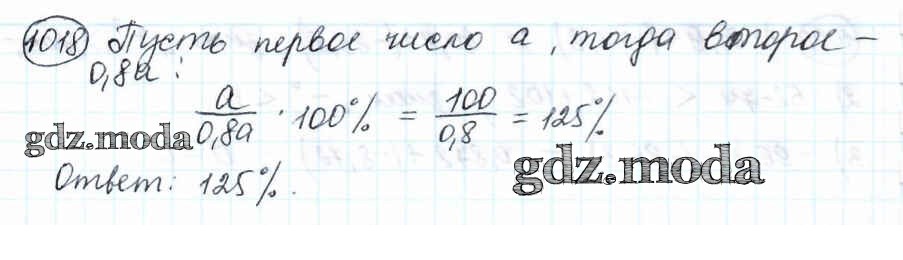 1018 Пусть первое число a, тогда второе –
0,8a:
a/0,8a · 100% = 100/0,8 = 125%
gdz.moda
gdz.moda
Ответ: 125%.